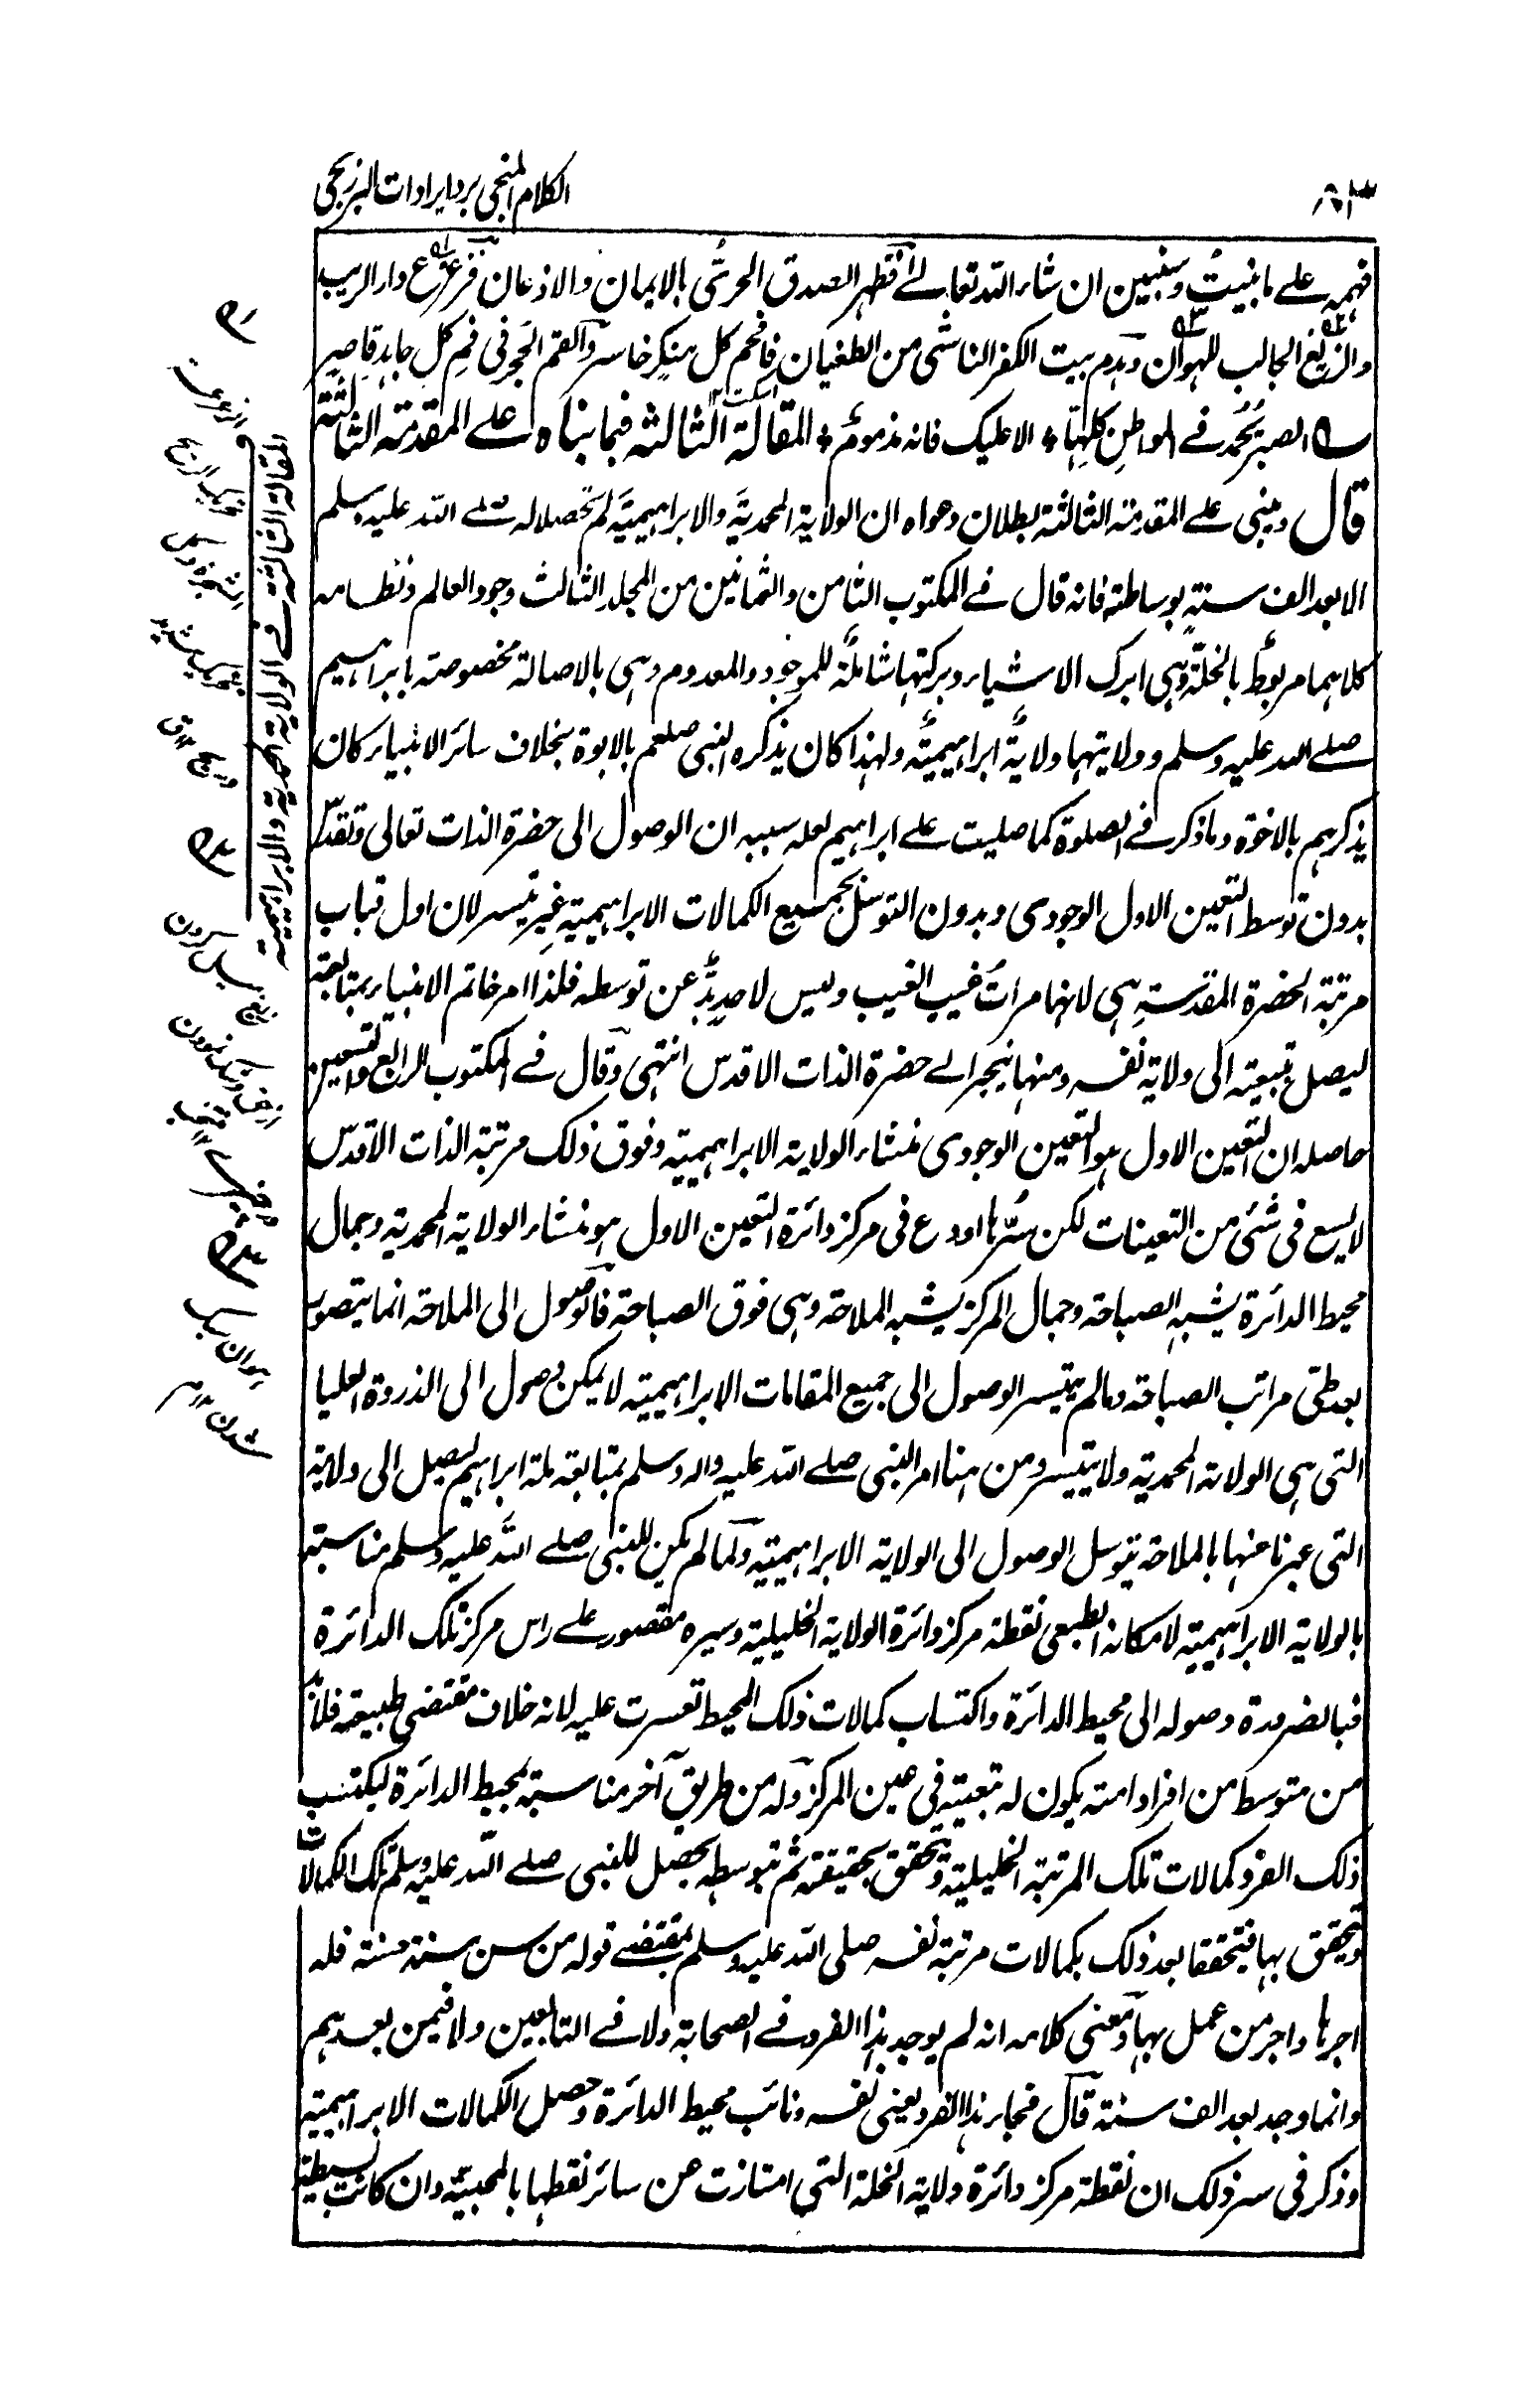 الكلام المنجي برد ايرادات البرزنجي
فهمه على ما بنيت وسنبين ان شاء الله تعالى فظهر الصدق الحرى بالايمان والاذعان دار الريب
والزيغ الجالب للهوان وهدم بيت الكفر الناشى من الطغيان فافحم كل منكر خاسر والقم الحجر فى فم كل جاهد قاصر
الصبر يحمد في المواطن كلها * الا عليك فانه مذموم * المقالة الثالثة فيما بناه على المقدمة الثالثة
قال ومبنى على المقدمة الثالثة بطلان دعواه ان الولاية المحمدية والابراهيمية لم تحصلا له صلى الله عليه وسلم
الا بعد الف سنة بوساطته فانه قال في المكتوب الثامن والثمانين من المجلد الثالث وجود العالم ونظامه
كلاهما مربوط بالخلة وهى ابرك الاشياء وبركتها شاملة للموجود والمعدوم وهى بالاصالة مخصوصة بابراهيم
صلى الله عليه وسلم وولايتها ولاية ابراهيمية ولهذا كان يذكره النبى صلعم بالابوة بخلاف سائر الانبياء كان
يذكرهم بالاخوة وما ذكر في الصلوة كما صليت على ابراهيم لعله سببه ان الوصول الى حضرة الذات تعالى وتقدس
بدون توسط التعين الاول الوجودى وبدون التوسل بجميع الكمالات الابراهيمية غير متيسر لان اول قباب
مرتبة الحضرة المقدسة هى لانها مرات غيب الغيب وليس لاحد بد عن توسطه فلذا امر خاتم الانبياء بمتابعته
ليصل بتبعيته الى ولاية نفسه ومنها ينجر الى حضرة الذات الاقدس انتهى وقال في المكتوب الرابع والتسعين
حاصله ان التعين الاول هو التعين الوجودى منشاء الولاية الابراهيمية وفوق ذلك مرتبة الذات الاقدس
لا يسع فى شئ من التعينات لكن سرها اودع فى مركز دائرة التعين الاول هو منشاء الولاية المحمدية وجمال
محيط الدائرة يشبه الصباحة وجمال المركز يشبه الملاحة وهى فوق الصباحة فالوصول الى الملاحة انما يتصور
بعد طى مراتب الصباحة وما لم يتيسر الوصول الى جميع المقامات الابراهيمية لا يمكن وصول الى الذروة العليا
التى هى الولاية المحمدية ولا يتيسر ومن هنا امر النبى صلى الله عليه واله وسلم بمتابعة ملة ابراهيم ليصل الى ولايته
التى عبرنا عنها بالملاحة بتوسل الوصول الى الولاية الابراهيمية ولما لم يكن للنبى صلى الله عليه وسلم مناسبة
بالولاية الابراهيمية لا مكانه الطبعى نقطة مركز دائرة الولاية الخليلية وسيره مقصور على راس مركز تلك الدائرة
فبالضرورة وصوله الى محيط الدائرة واكتساب كمالات ذلك المحيط تعسرت عليه لانه خلاف مقتضى طبيعته فلابد
من متوسط من افراد امته يكون له تبعيته فى عين المركز وله من طريق آخر مناسبة بمحيط الدائرة ليكتسب
ذلك الفرد كمالات تلك المرتبة الخليلية ويتحقق بحقيقته ثم بتوسطه يحصل للنبى صلى الله عليه وسلم تلك الكمالات
ويتحقق بها فيتحققا بعد ذلك بكمالات مرتبة نفسه صلى الله عليه وسلم بمقتضى قوله من سن سنة حسنة فله
اجرها واجر من عمل بها ومعنى كلامه انه لم يوجد هذا الفرد في الصحابة ولا في التابعين ولا فيمن بعدهم
وانما وجد بعد الف سنة قال فجاء هذا الفرد يعنى نفسه ونائب محيط الدائرة وحصل الكمالات الابراهيمية
وذكر فى سر ذلك ان نقطة مركز دائرة ولاية الخلة التى امتازت عن سائر نقطها بالمحبية وان كانت بسيطة
المقالة الثالثة في الولاية المحمدية والابراهيمية